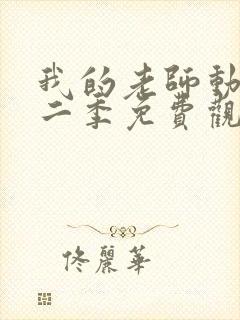 我的老師動
二季免費觀
佟麗華